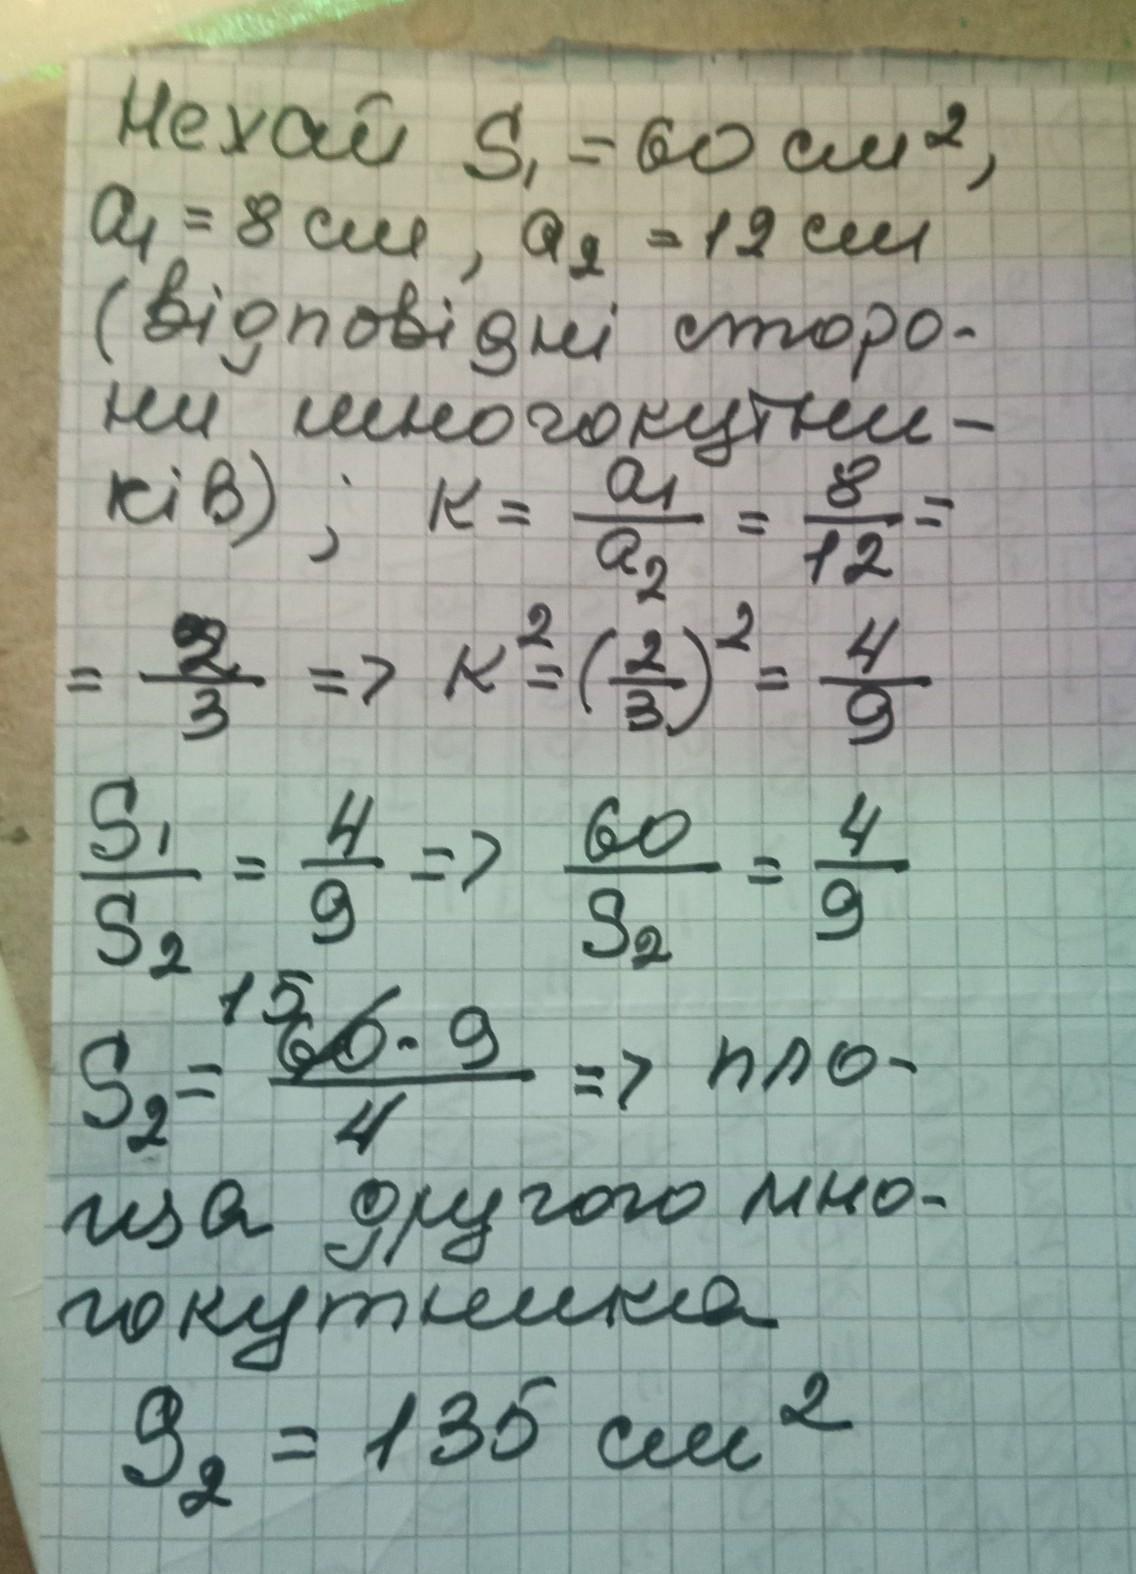 Нехай S₁ = 60 см²,
a₁ = 8 см, a₂ = 12 см
(відповідні сторо-
ни многокутни-
ків); к = a₁/a₂ = 8/12 =
= 2/3 => к² = (2/3)² = 4/9
S₁/S₂ = 4/9 => 60/S₂ = 4/9
15
S₂ = 60·9/4 => пло-
ща другого мно-
гокутника
S₂ = 135 см²